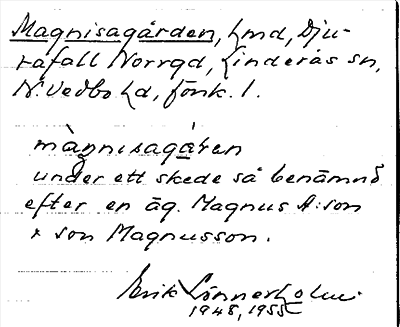 Magnisagården, Lmd, Dju-
rafall Norrgd, Linderås sn,
N. Vedbo hd, Jönk. l.
màgnisagá̱ren
under ett skede så benämnd
efter en äg. Magnus A:son
x son Magnusson.
Erik Lönnerholm
1948, 1955